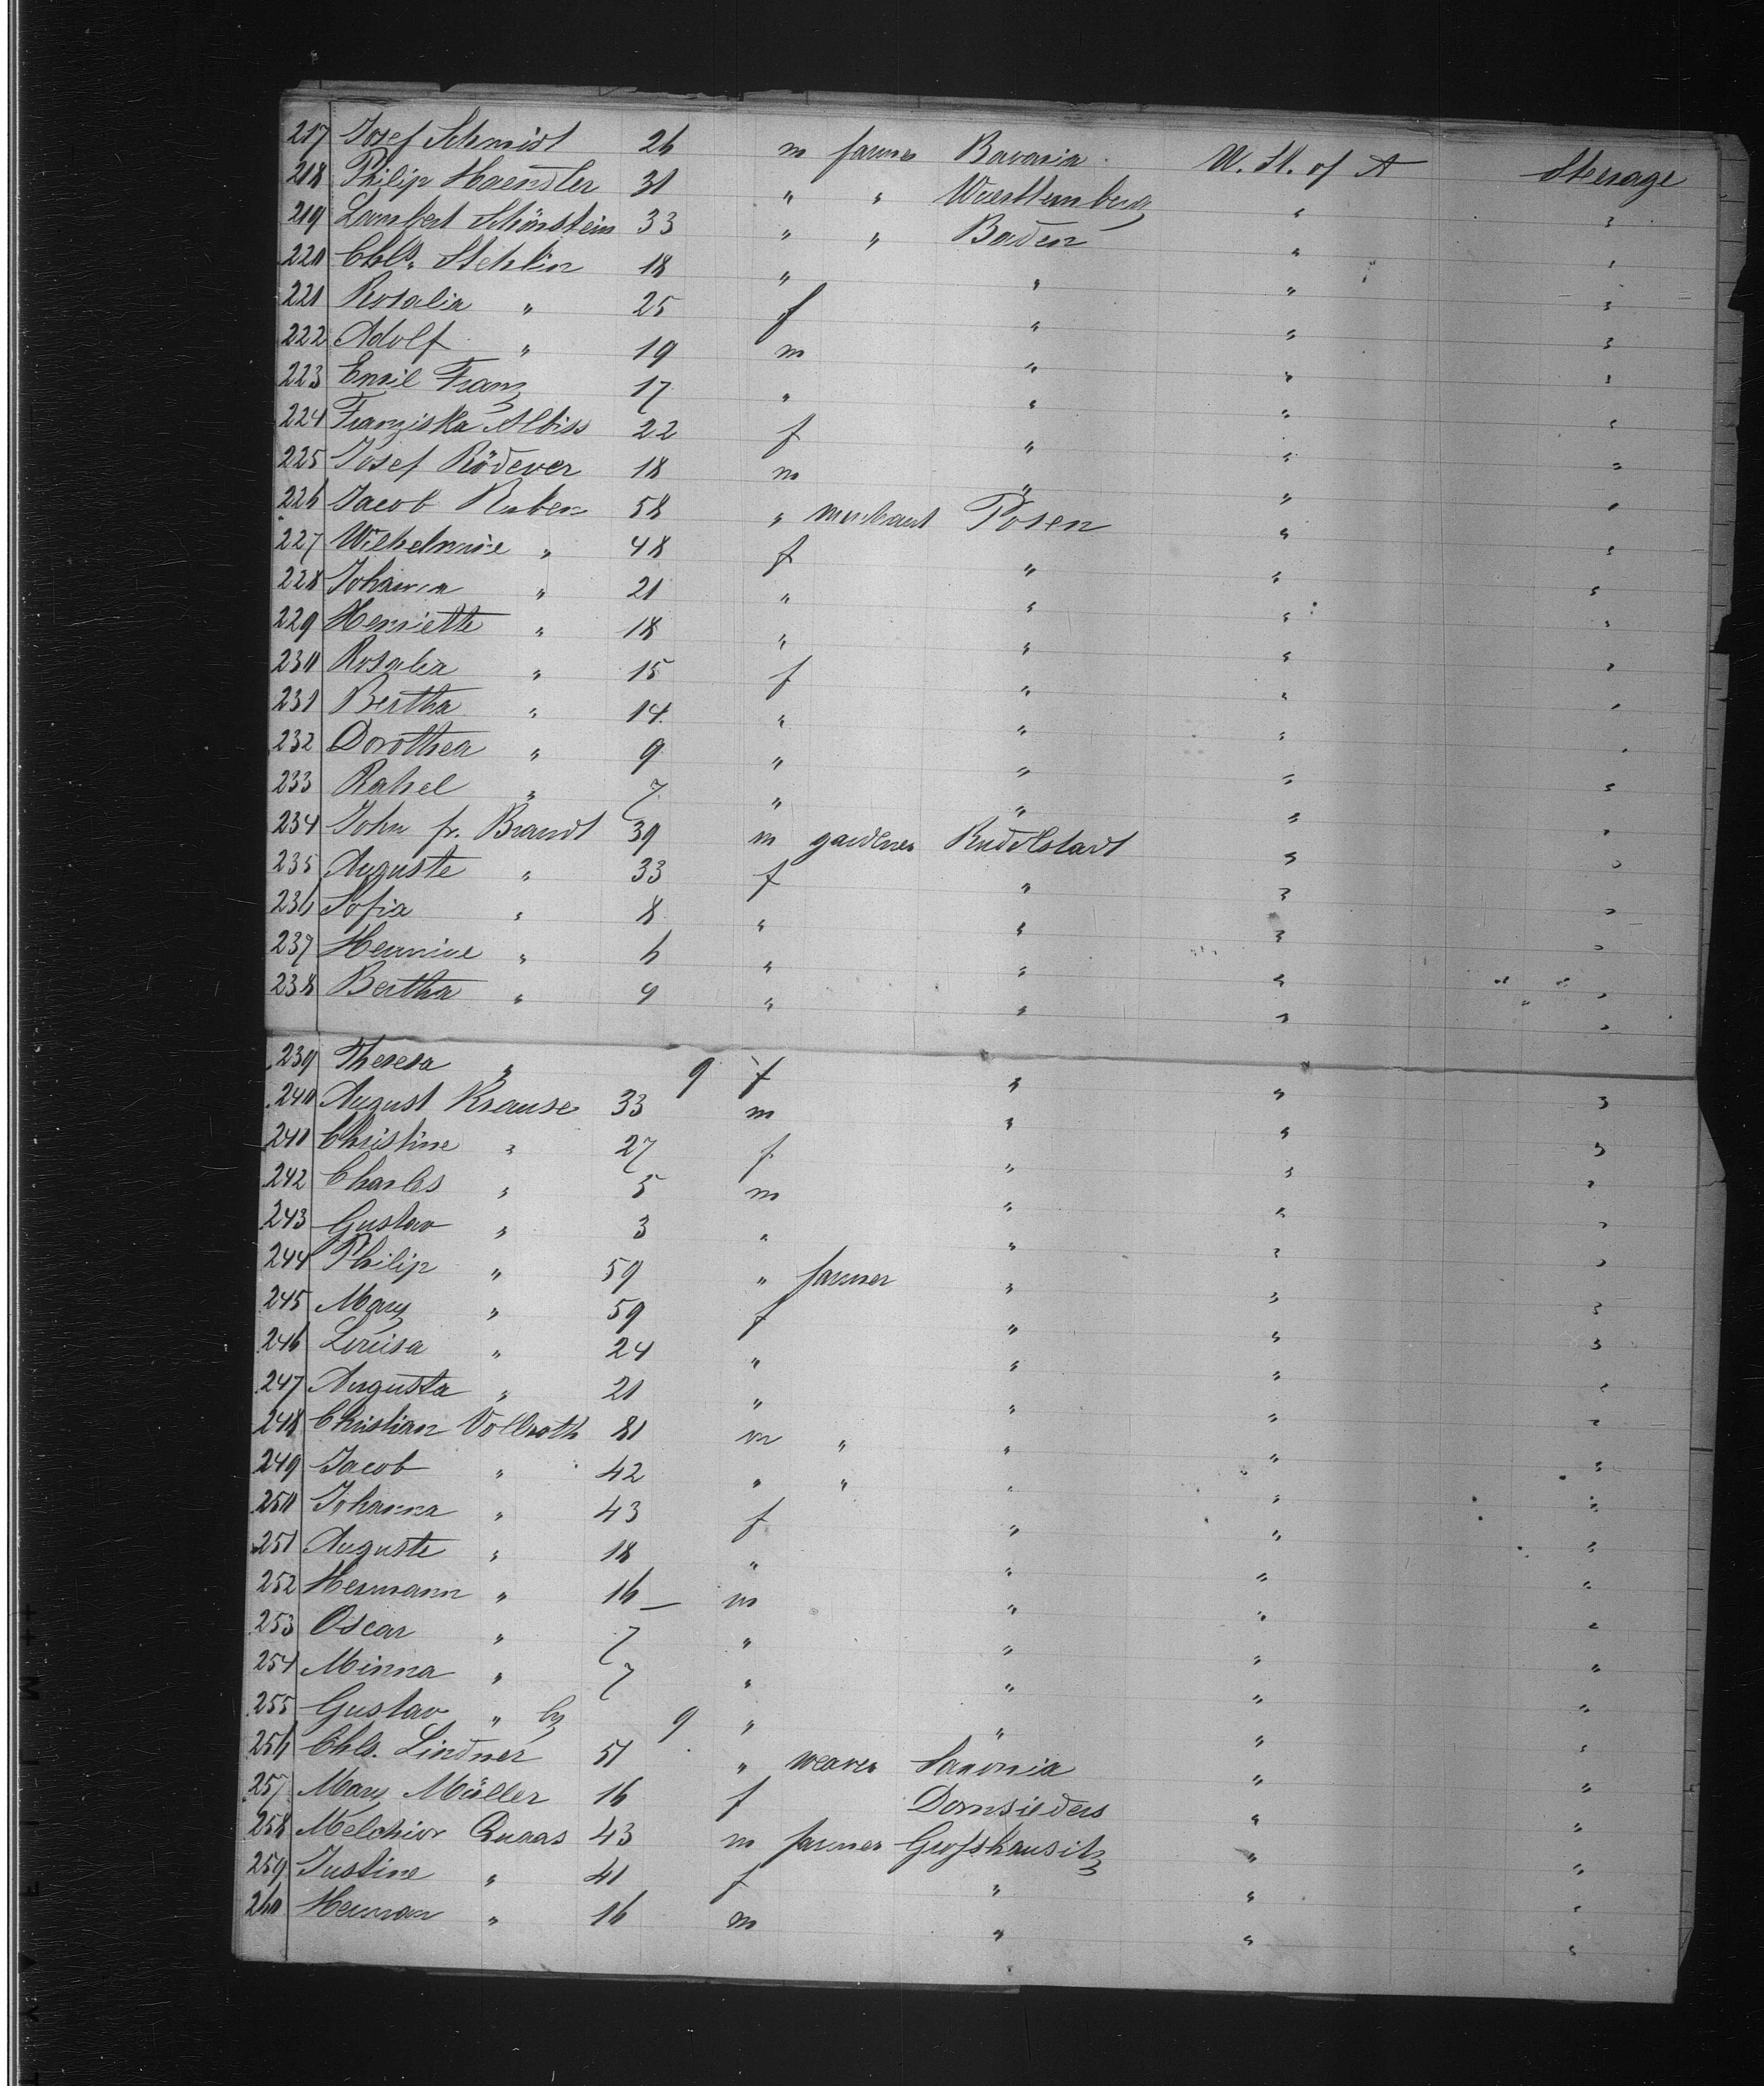 217 Josef Schmidt 26 m farmer Bavaria U. St. of A Steerage
218 Philip Haensler 31 " " Wuerttemberg " "
219 Lambert Schönstein 33 " " Baden " "
220 Chls. Stehlin 18 " " " "
221 Rosalia " 25 f " " "
222 Adolf " 19 m " " "
223 Emil Franz 17 " " " "
224 Franziska Albiss 22 f " " "
225 Josef Röderer 18 m " " "
226 Jacob Ruben 58 " merchant Posen " "
227 Wilhelmine " 48 f " " "
228 Johanna " 21 " " " "
229 Henriette " 18 " " " "
230 Rosalia " 15 f " " "
231 Bertha " 14 " " " "
232 Dorothea " 9 " " " "
233 Rahel " 7 " " " "
234 John fr. Brandt 39 m gardener Rudolstadt " "
235 Auguste " 33 f " " "
236 Sofia " 8 " " " "
237 Hermine " 6 " " " "
238 Bertha " 4 " " " "
239 Theresa " 9 f " " "
240 August Krause 33 m " " "
241 Christine " 27 f " " "
242 Charles " 5 m " " "
243 Gustav " 3 " " " "
244 Philip " 59 " farmer " " "
245 Mary " 59 f " " "
246 Louisa " 24 " " " "
247 Augusta " 21 " " " "
248 Christian Vollrath 81 m " " " "
249 Jacob " 42 " " " " "
250 Johanna " 43 f " " "
251 Auguste " 18 " " " "
252 Hermann " 16 m " " "
253 Oscar " 7 " " " "
254 Minna " 7 " " " "
255 Gustav " 9 " " " "
256 Chls. Lindner 51 " weaver Saxonia " "
257 Mary Müller 16 f Dornsieders " "
258 Melchior Quaas 43 m farmer " "
259 Justine " 41 f " " "
260 Herman " 16 m " " "